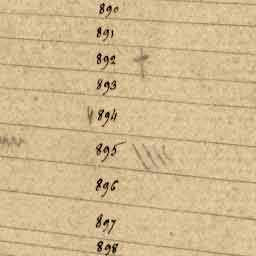 890
891
892
893
894
895
896
897
898